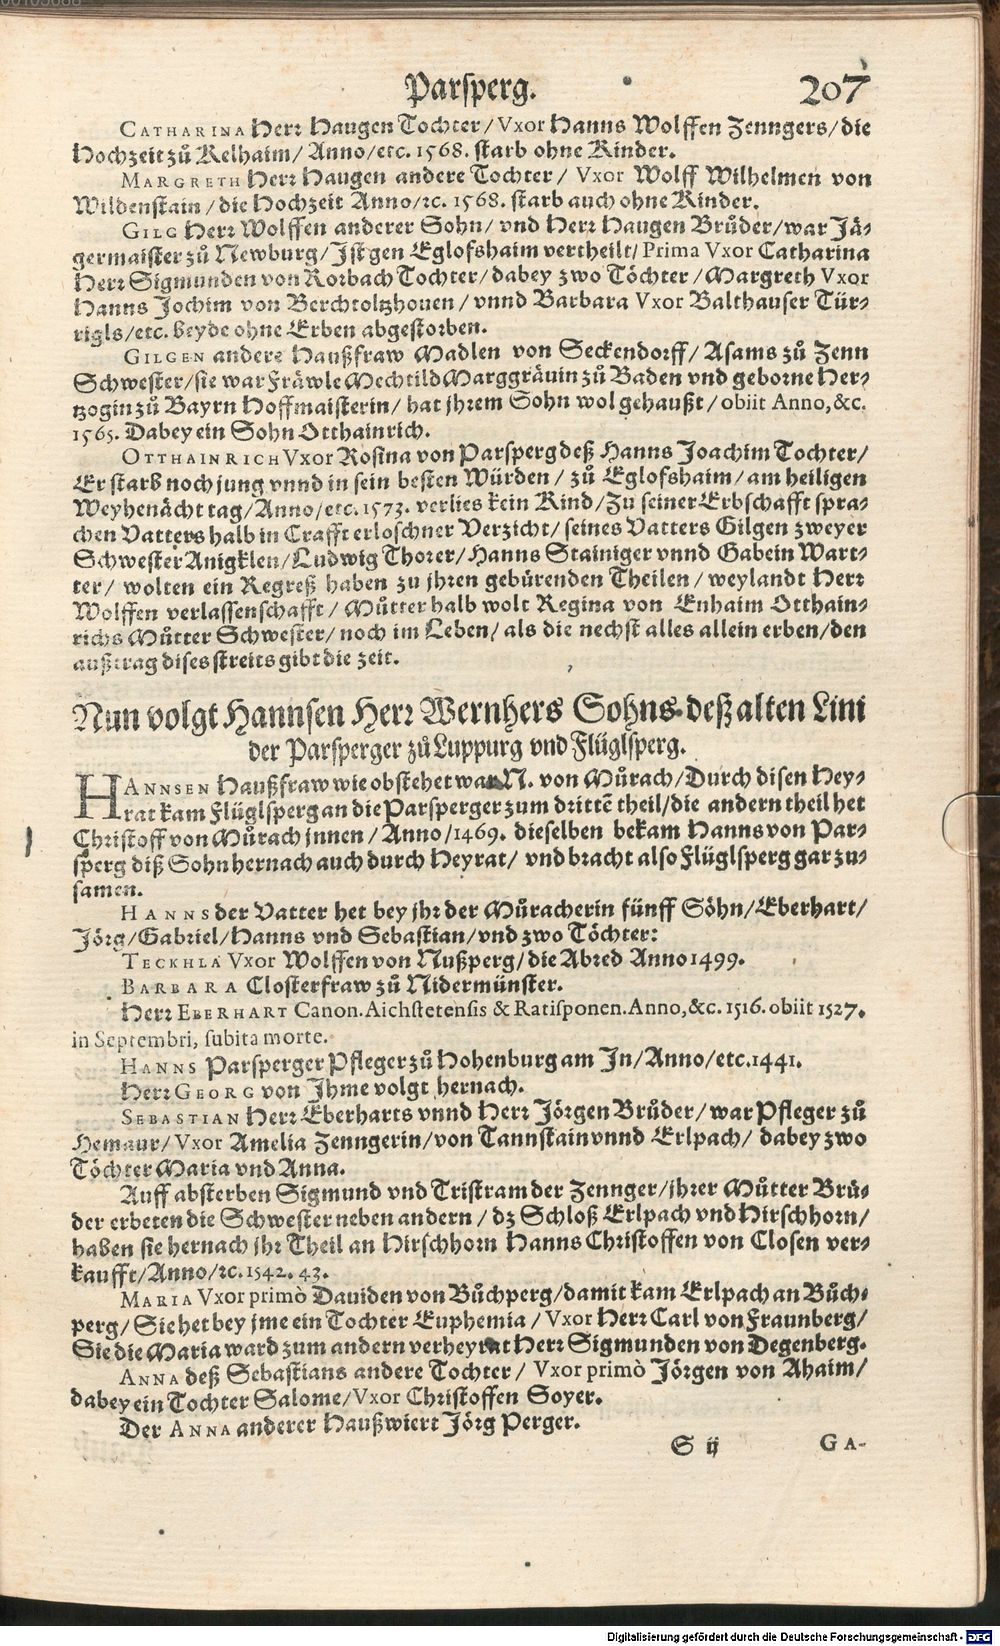 Parsperg. 207
CATHARINA Herr Haugen Tochter/ Vxor Hanns Wolffen Zenngers/ die
Hochzeit zů Kelhaim/ Anno/ etc. 1568. starb ohne Kinder.
MARGRETH Herr Haugen andere Tochter/ Vxor Wolff Wilhelmen von
Wildenstain/ die Hochzeit Anno/ ꝛc. 1568. starb auch ohne Kinder.
GILG Herr Wolffen anderer Sohn/ vnd Herr Haugen Brůder/ war Jä-
germaister zů Newburg/ Ist gen Eglofshaim vertheilt/ Prima Vxor Catharina
Herr Sigmunden von Rorbach Tochter/ dabey zwo Töchter/ Margreth Vxor
Hanns Jochim von Berchtoltzhouen/ vnnd Barbara Vxor Balthauser Tür-
rigls/ etc. beyde ohne Erben abgestorben.
GILGEN andere Haußfraw Madlen von Seckendorff/ Asams zů Zenn
Schwester/ sie war Fräwle Mechtild Marggräuin zů Baden vnd geborne Her-
tzogin zů Bayrn Hoffmaisterin/ hat jhrem Sohn wol gehaußt/ obiit Anno, &c.
1565. Dabey ein Sohn Otthainrich.
OTTHAINRICH Vxor Rosina von Parsperg deß Hanns Joachim Tochter/
Er starb noch jung vnnd in sein besten Würden/ zů Eglofshaim/ am heiligen
Weyhenächt tag/ Anno/ etc. 1573. verlies kein Kind/ Zu seiner Erbschafft spra-
chen Vatters halb in Crafft erloschner Verzicht/ seines Vatters Gilgen zweyer
Schwester Anigklen/ Ludwig Thorer/ Hanns Stainiger vnnd Gabein Wart-
ter/ wolten ein Regreß haben zu jhren gebürenden Theilen/ weylandt Herr
Wolffen verlassenschafft/ Můtter halb wolt Regina von Enhaim Otthain-
richs Můtter Schwester/ noch im Leben/ als die nechst alles allein erben/ den
außtrag dises streits gibt die zeit.
Nun volgt Hannsen Herr Wernhers Sohns deß alten Lini
der Parsperger zů Luppurg vnd Flüglsperg.
HANNSEN Haußfraw wie obstehet war N. von Můrach/ Durch disen Hey-
rat kam Flüglsperg an die Parsperger zum drittē theil/ die andern theil het
Christoff von Můrach jnnen/ Anno/ 1469. dieselben bekam Hanns von Par-
sperg diß Sohn hernach auch durch Heyrat/ vnd bracht also Flüglsperg gar zu-
samen.
HANNS der Vatter het bey jhr der Můracherin fünff Söhn/ Eberhart/
Jörg/ Gabriel/ Hanns vnd Sebastian/ vnd zwo Töchter:
TECKHLA Vxor Wolffen von Nußperg/ die Abred Anno 1499.
BARBARA Closterfraw zů Nidermünster.
Herr EBERHART Canon. Aichstetensis & Ratisponen. Anno, &c. 1516. obiit 1527.
in Septembri, subita morte.
HANNS Parsperger Pfleger zů Hohenburg am In/ Anno/ etc. 1441.
Herr GEORG von Ihme volgt hernach.
SEBASTIAN Herr Eberharts vnnd Herr Jörgen Brůder/ war Pfleger zů
Hemaur/ Vxor Amelia Zenngerin/ von Tannstain vnnd Erlpach/ dabey zwo
Töchter Maria vnd Anna.
Auff absterben Sigmund vnd Tristram der Zennger/ jhrer Můtter Brü-
der erbeten die Schwester neben andern/ dz Schloß Erlpach vnd Hirschhorn/
haben sie hernach jhr Theil an Hirschhorn Hanns Christoffen von Closen ver-
kaufft/ Anno/ ꝛc. 1542. 43.
MARIA Vxor primò Dauiden von Bůchperg/ damit kam Erlpach an Bůch-
perg/ Sie het bey jme ein Tochter Euphemia/ Vxor Herr Carl von Fraunberg/
Sie die Maria ward zum andern verheyrat Herr Sigmunden von Degenberg.
ANNA deß Sebastians andere Tochter/ Vxor primò Jörgen von Ahaim/
dabey ein Tochter Salome/ Vxor Christoffen Soyer.
Der ANNA anderer Haußwiert Jörg Perger.
S ij GA-
Digitalisierung gefördert durch die Deutsche Forschungsgemeinschaft - DFG